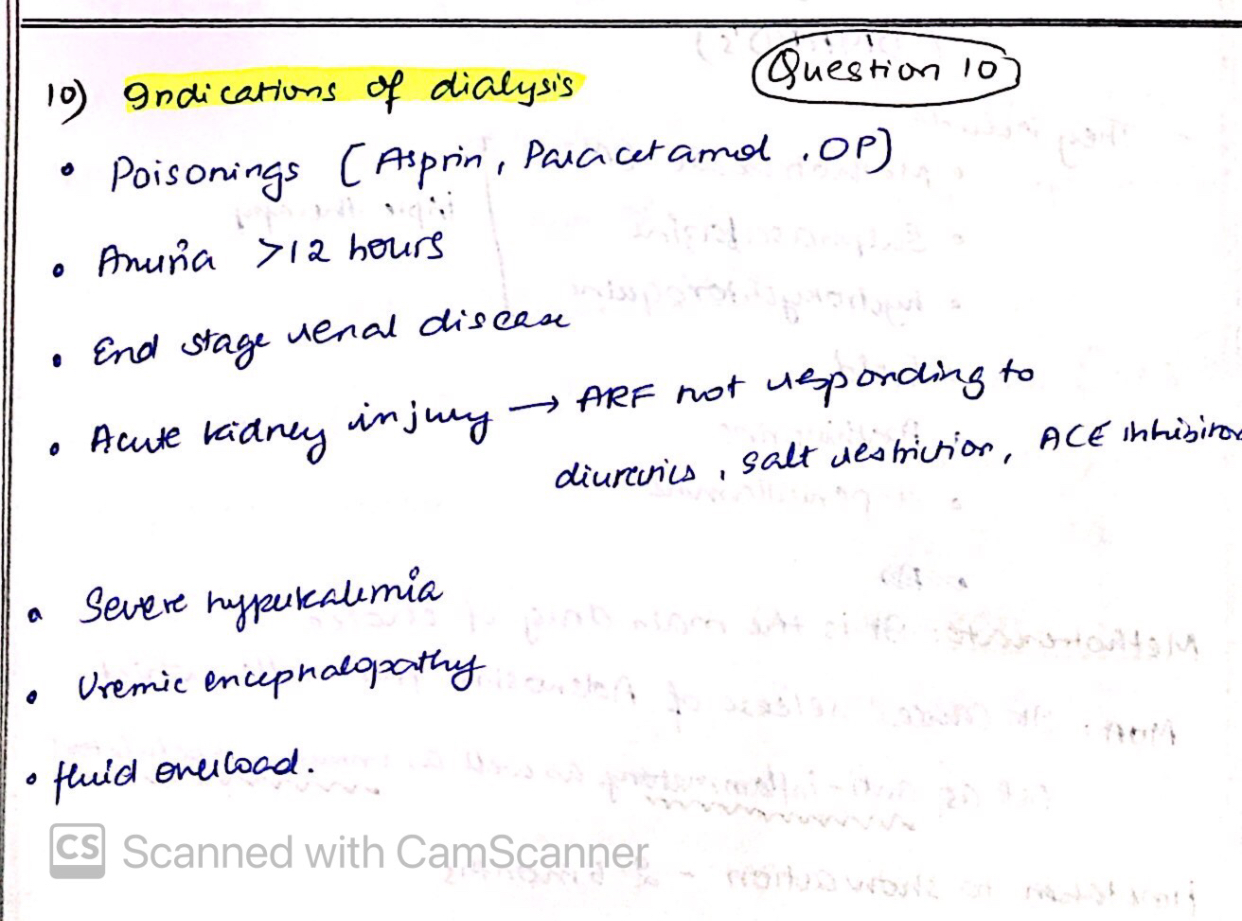 Question 10
10) Indications of dialysis
• Poisonings (Asprin, Paracetamol, OP)
• Anuria >12 hours
• End stage renal disease
• Acute kidney injury → ARF not responding to
diuretics, salt restriction, ACE inhibitor
• Severe hyperkalemia
• Uremic encephalopathy
• fluid overload.
CS Scanned with CamScanner